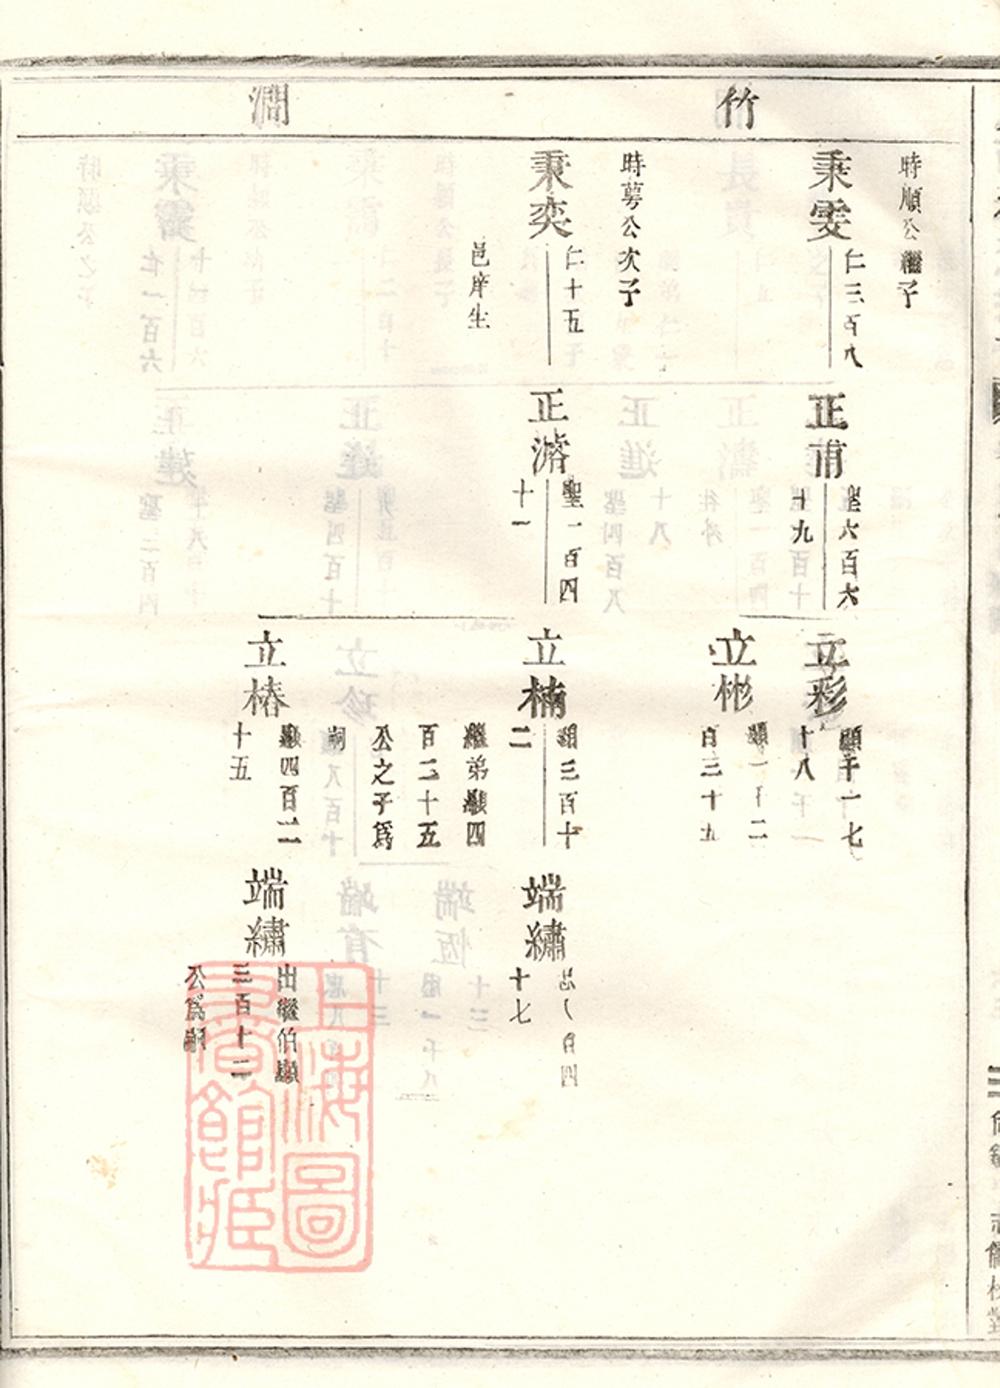 竹
澗
時順公繼子
秉雯
仁三百八
時蕚公次子
秉奕
仁十五
邑庠生
正甫
聖六百六
十九
正濬
聖一百四
十一
立彩
顯千一七
十八
立彬
百三十五
立楠
顯三百十
二
繼弟顯四
百二十五
公之子爲
嗣
立椿
顯四百二
十五
端繡
十七
端繡
出繼伯顯
三百十二
公爲嗣
上海圖
書館藏